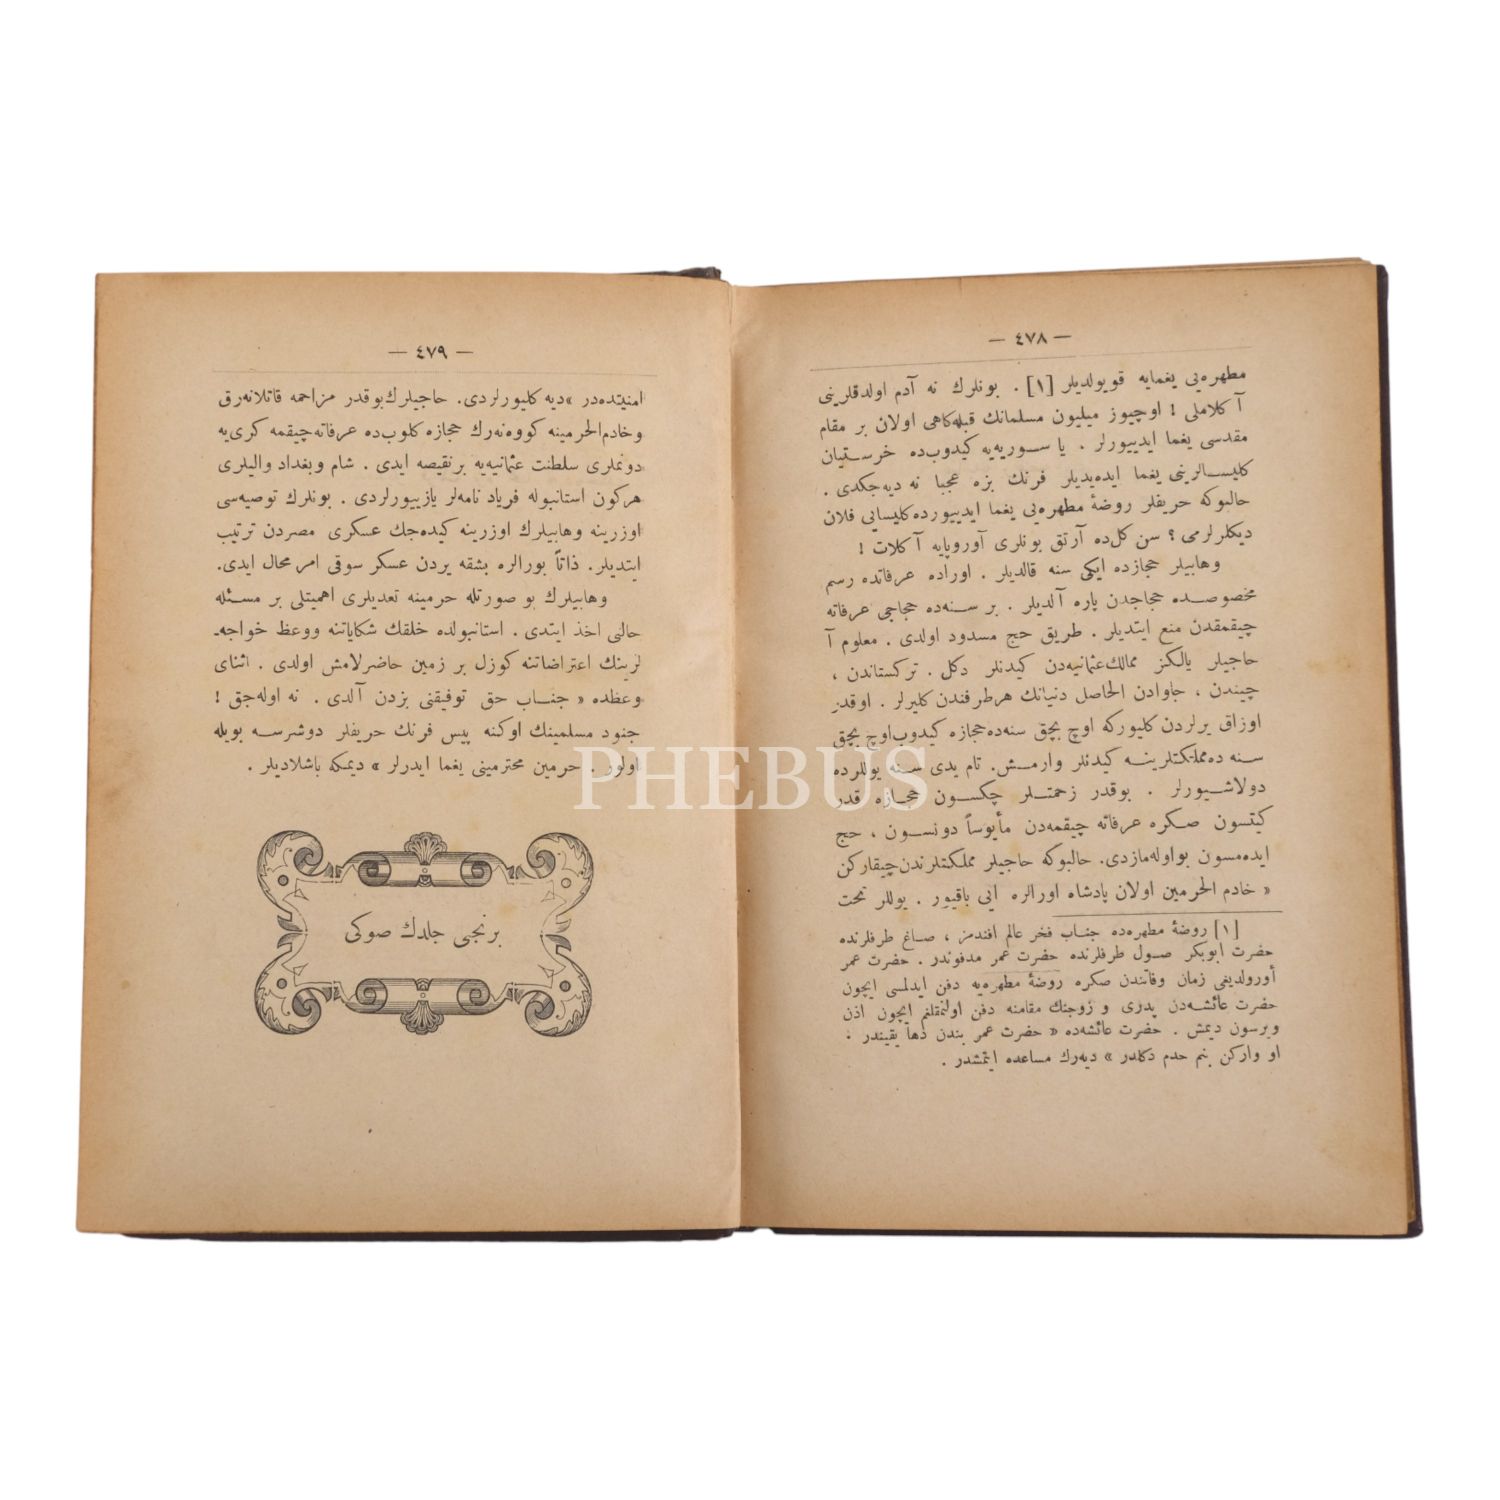 — ٤٧٨ —
مطهره‌یی یغمایه قویولدیلر [١] . بونلرك نه آدم اولدقلرینی
آ كلاملی ! اوچیوز میلیون مسلمانك قبله‌كاهی اولان بر مقام
مقدسی یغما ایدییورلر . یا سوریه‌یه كیدوب‌ده خرستیان
كلیسالرینی یغما ایده‌یدیلر فرنك بزه عجبا نه دیه‌جكدی .
حالبوكه حریفلر روضهٔ مطهره‌یی یغما ایدییورده كلیسایی فلان
دیكلرلرمی ؟ سن كل‌ده آرتق بونلری آوروپایه آ كلات !
وهابیلر حجازده ایكی سنه قالدیلر . اوراده عرفاتده رسم
مخصوصده حجاجدن پاره آلدیلر . بر سنه‌ده حجاجی عرفاته
چیقمقدن منع ایتدیلر . طریق حج مسدود اولدی . معلوم آ
حاجیلر یالكز ممالك عثمانیه‌دن كیدنلر دكل . تركستاندن ،
چیندن ، جاوادن الحاصل دنیانك هر طرفندن كلیرلر . اوقدر
اوزاق یرلردن كلیوركه اوچ بچق سنه‌ده حجازه كیدوب اوچ بچق
سنه ده مملكتلرینه كیدنلر وارمش. تام یدی سنه یوللرده
دولاشیورلر . بوقدر زحمتلر چكسون حجازه قدر
كیتسون صكره عرفاته چیقمه‌دن مأیوساً دونسون ، حج
ایده‌مسون بو اوله‌مازدی. حالبوكه حاجیلر مملكتلرندن چیقاركن
« خادم الحرمین اولان پادشاه اورالره ایی باقیور . یوللر تحت
[١] روضهٔ مطهره‌ده جناب فخر عالم افندمز ، صاغ طرفلرنده
حضرت ابوبكر صول طرفلرنده حضرت عمر مدفوندر . حضرت عمر
أورولدیغی زمان وفاتندن صكره روضهٔ مطهره‌یه دفن ایدلمسی ایچون
حضرت عائشه‌دن پدری و زوجنك مقامنه دفن اولنمقلغم ایچون اذن
ویرسون دیمش . حضرت عائشه‌ده « حضرت عمر بندن دها یقیندر .
او واركن بنم حدم دكلدر » دیه‌رك مساعده ایتمشدر .
— ٤٧٩ —
امنیتده‌در » دیه كلیورلردی. حاجیلرك بوقدر مزاحمه قاتلانه‌رق
وخادم‌الحرمینه كووه‌نه‌رك حجازه كلوب‌ده عرفاته چیقمه كری‌یه
دونملری سلطنت عثمانیه‌یه برنقیصه ایدی . شام وبغداد والیلری
هركون استانبوله فریاد نامه‌لر یازییورلردی . بونلرك توصیه‌سی
اوزرینه وهابیلرك اوزرینه كیده‌جك عسكری مصردن ترتیب
ایتدیلر. ذاتاً بورالره بشقه یردن عسكر سوقی امر محال ایدی.
وهابیلرك بو صورتله حرمینه تعدیلری اهمیتلی بر مسئله
حالنی اخذ ایتدی . استانبولده خلقك شكایاتنه ووعظ خواجه‌ـ
لرینك اعتراضاتنه كوزل بر زمین حاضرلامش اولدی . اثنای
وعظده « جناب حق توفیقنی بزدن آلدی . نه اوله‌جق !
جنود مسلمینك اوكنه پیس فرنك حریفلر دوشرسه بویله
اولور . حرمین محترمینی یغما ایدرلر » دیمكه باشلادیلر .
برنجی جلدك صوكی
PHEBUS